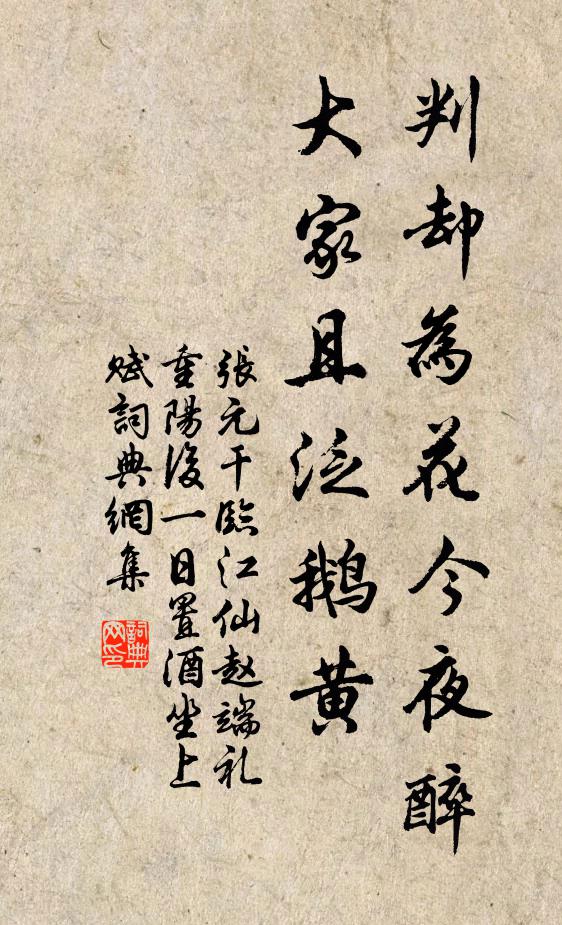 判却為花今夜醉
大家且泛鹅黄
張元干臨江仙赵端礼
重陽後一日置酒坐上
赋詞典網集
詞典網印